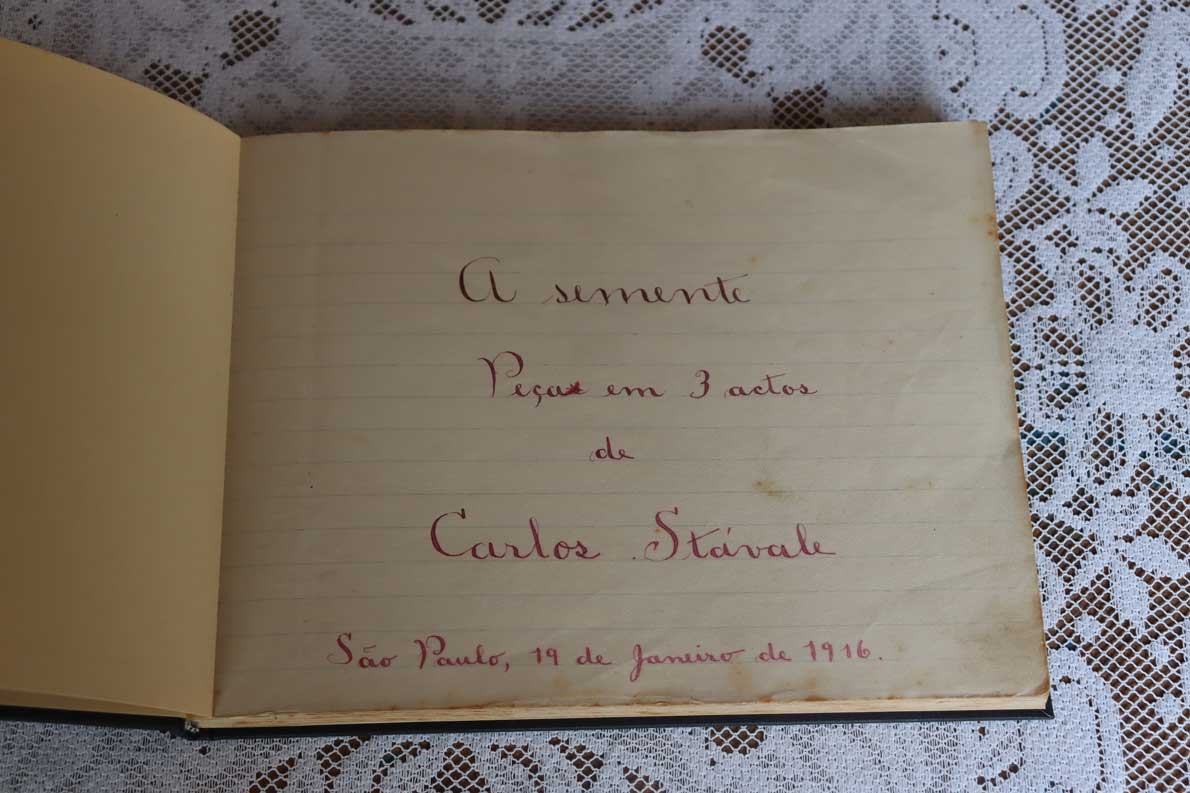 A semente
Peça em 3 actos
de
Carlos Stávale
São Paulo, 19 de Janeiro de 1916.